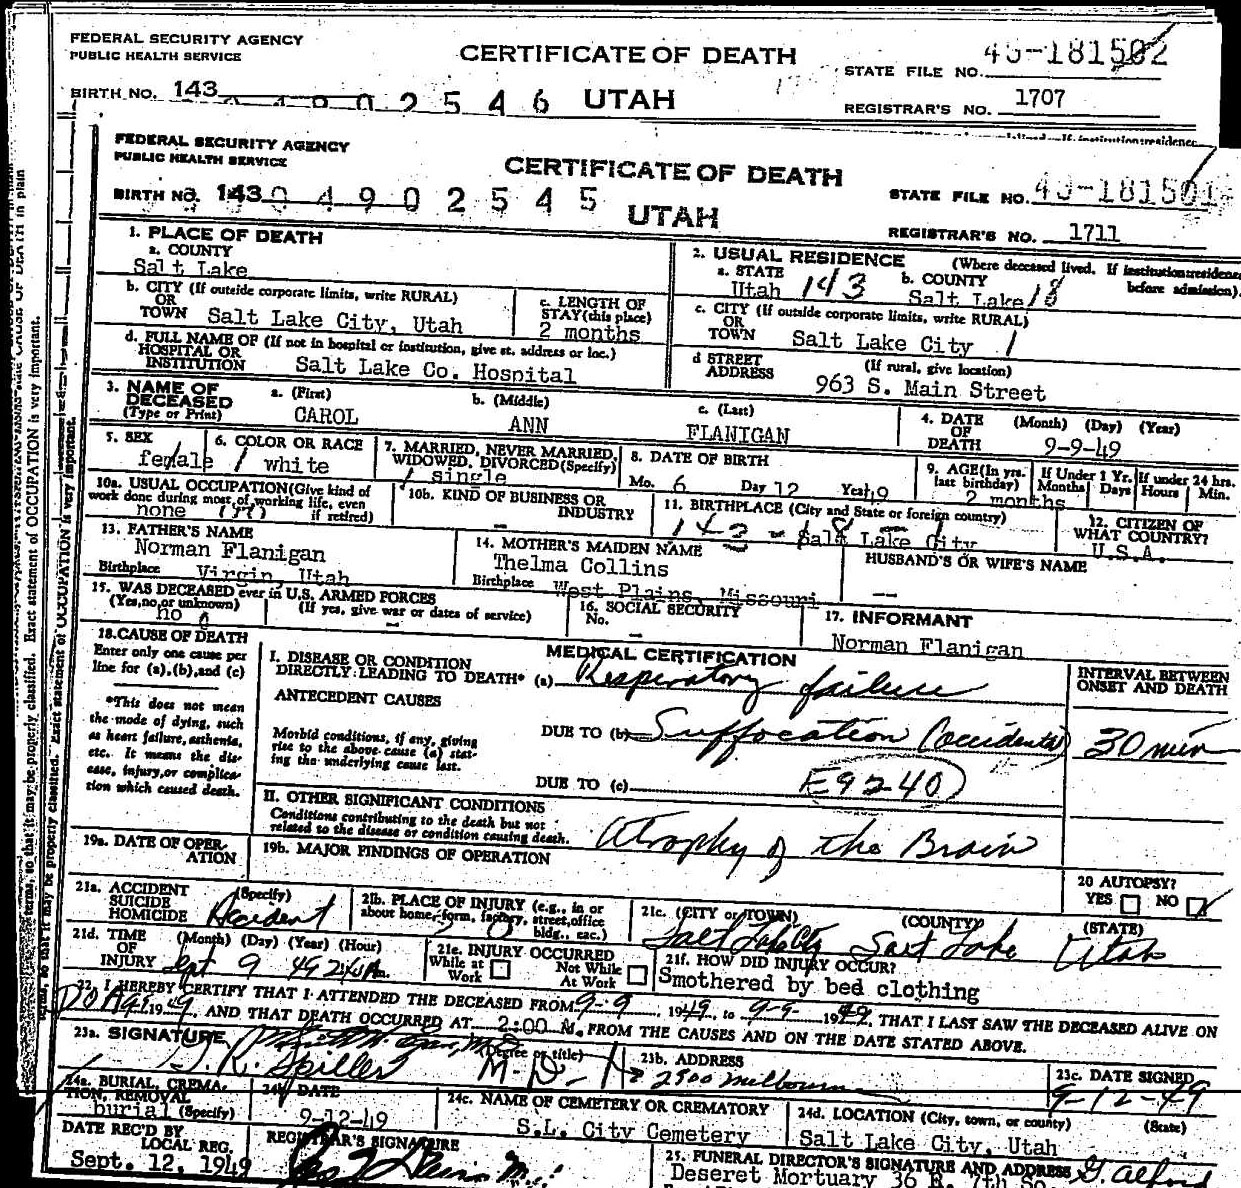 FEDERAL SECURITY AGENCY
PUBLIC HEALTH SERVICE
CERTIFICATE OF DEATH
STATE FILE NO. 49-181502
BIRTH NO. 143 4902546 UTAH
REGISTRAR'S NO. 1707
FEDERAL SECURITY AGENCY
PUBLIC HEALTH SERVICE
CERTIFICATE OF DEATH
STATE FILE NO. 49-181501
BIRTH NO. 143 4902545 UTAH
REGISTRAR'S NO. 1711
1. PLACE OF DEATH
a. COUNTY
Salt Lake
2. USUAL RESIDENCE (Where deceased lived. If institution: residence before admission).
a. STATE Utah 143 b. COUNTY Salt Lake 18
b. CITY (If outside corporate limits, write RURAL)
OR
TOWN Salt Lake City, Utah
c. LENGTH OF
STAY (this place)
2 months
c. CITY (If outside corporate limits, write RURAL)
OR
TOWN Salt Lake City 1
d. FULL NAME OF (If not in hospital or institution, give st. address or loc.)
HOSPITAL OR
INSTITUTION Salt Lake Co. Hospital
d STREET (If rural, give location)
ADDRESS 963 S. Main Street
3. NAME OF
DECEASED
(Type or Print)
a. (First) b. (Middle) c. (Last)
CAROL ANN FLANIGAN
4. DATE (Month) (Day) (Year)
OF
DEATH 9-9-49
5. SEX
female
6. COLOR OR RACE
white
7. MARRIED, NEVER MARRIED,
WIDOWED, DIVORCED (Specify)
single
8. DATE OF BIRTH
Mo. 6 Day 12 Year 49
9. AGE (In yrs. last birthday) If Under 1 Yr. Months Days If under 24 hrs. Hours Min.
2 months
10a. USUAL OCCUPATION (Give kind of
work done during most of working life, even
if retired)
none
10b. KIND OF BUSINESS OR
INDUSTRY
11. BIRTHPLACE (City and State or foreign country)
Salt Lake City
12. CITIZEN OF
WHAT COUNTRY?
U.S.A.
13. FATHER'S NAME
Norman Flanigan
Birthplace Virgin, Utah
14. MOTHER'S MAIDEN NAME
Thelma Collins
Birthplace West Plains, Missouri
HUSBAND'S OR WIFE'S NAME
15. WAS DECEASED ever in U.S. ARMED FORCES
(Yes, no, or unknown) (If yes, give war or dates of service)
no
16. SOCIAL SECURITY
No.
17. INFORMANT
Norman Flanigan
18. CAUSE OF DEATH
Enter only one cause per
line for (a), (b), and (c)
*This does not mean
the mode of dying, such
as heart failure, asthenia,
etc. It means the dis-
ease, injury, or complica-
tion which caused death.
MEDICAL CERTIFICATION
I. DISEASE OR CONDITION
DIRECTLY LEADING TO DEATH* (a) Respiratory failure
INTERVAL BETWEEN
ONSET AND DEATH
ANTECEDENT CAUSES
Morbid conditions, if any, giving
rise to the above cause (a) stat-
ing the underlying cause last.
DUE TO (b) Suffocation (accidental) 30 min
DUE TO (c) E9240
II. OTHER SIGNIFICANT CONDITIONS
Conditions contributing to the death but not
related to the disease or condition causing death.
Atrophy of the Brain
19a. DATE OF OPER-
ATION
19b. MAJOR FINDINGS OF OPERATION
20 AUTOPSY?
YES NO
21a. ACCIDENT (Specify)
SUICIDE
HOMICIDE Accident
21b. PLACE OF INJURY (e.g., in or
about home, farm, factory, street, office
bldg., etc.)
21c. (CITY or TOWN) (COUNTY) (STATE)
Salt Lake City Salt Lake Utah
21d. TIME (Month) (Day) (Year) (Hour)
OF
INJURY Sept 9 49
21e. INJURY OCCURRED
While at Work Not While At Work
21f. HOW DID INJURY OCCUR?
Smothered by bed clothing
22. I HEREBY CERTIFY THAT I ATTENDED THE DECEASED FROM 9-9, 1949, to 9-9-1949, THAT I LAST SAW THE DECEASED ALIVE ON
DOA 9-9, 1949, AND THAT DEATH OCCURRED AT 2:00 M. FROM THE CAUSES AND ON THE DATE STATED ABOVE.
23a. SIGNATURE (Degree or title)
M.D.
23b. ADDRESS
23c. DATE SIGNED
9-12-49
24a. BURIAL, CREMA-
TION, REMOVAL
burial (Specify)
24b DATE
9-12-49
24c. NAME OF CEMETERY OR CREMATORY
S.L. City Cemetery
24d. LOCATION (City, town, or county) (State)
Salt Lake City, Utah
DATE REC'D BY
LOCAL REG.
Sept. 12, 1949
REGISTRAR'S SIGNATURE
25. FUNERAL DIRECTOR'S SIGNATURE AND ADDRESS
Deseret Mortuary 36 E. 7th So.